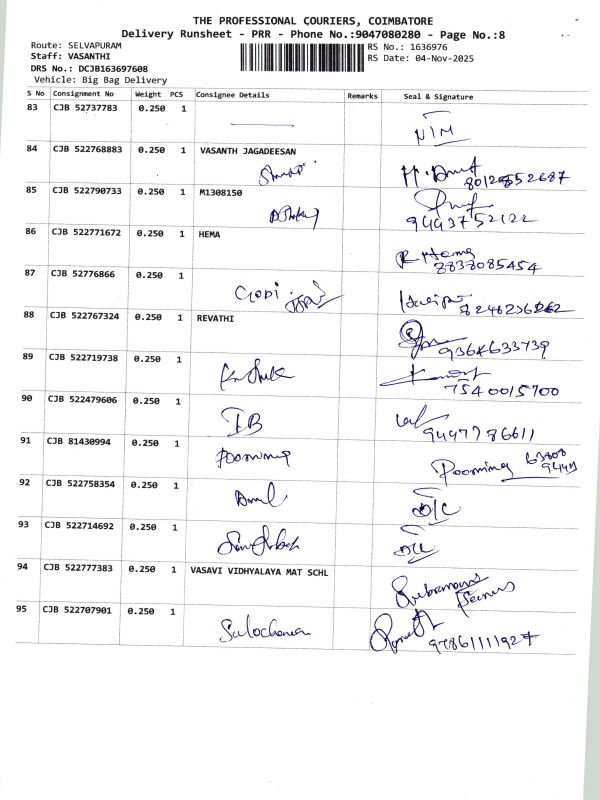 THE PROFESSIONAL COURIERS, COIMBATORE
Delivery Runsheet - PRR - Phone No.:9047080280 - Page No.:8
Route: SELVAPURAM
RS No.: 1636976
Staff: VASANTHI
RS Date: 04-Nov-2025
DRS No.: DCJB163697608
Vehicle: Big Bag Delivery
S No Consignment No Weight PCS Consignee Details Remarks Seal & Signature
83 CJB 52737783 0.250 1
N/M
84 CJB 522768883 0.250 1 VASANTH JAGADEESAN
85 CJB 522790733 0.250 1 M1308150
9443752122
86 CJB 522771672 0.250 1 HEMA
R Hema
8838085454
87 CJB 52776866 0.250 1
Gopi
88 CJB 522767324 0.250 1 REVATHI
9364633739
89 CJB 522719738 0.250 1
7540015700
90 CJB 522479606 0.250 1
IB
9497786611
91 CJB 81430994 0.250 1
Poornima
92 CJB 522758354 0.250 1
D/C
93 CJB 522714692 0.250 1
94 CJB 522777383 0.250 1 VASAVI VIDHYALAYA MAT SCHL
95 CJB 522707901 0.250 1
Sulochana